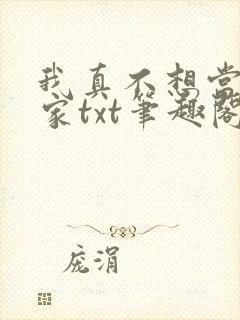 我真不想当
家txt笔趣阁
庞涓